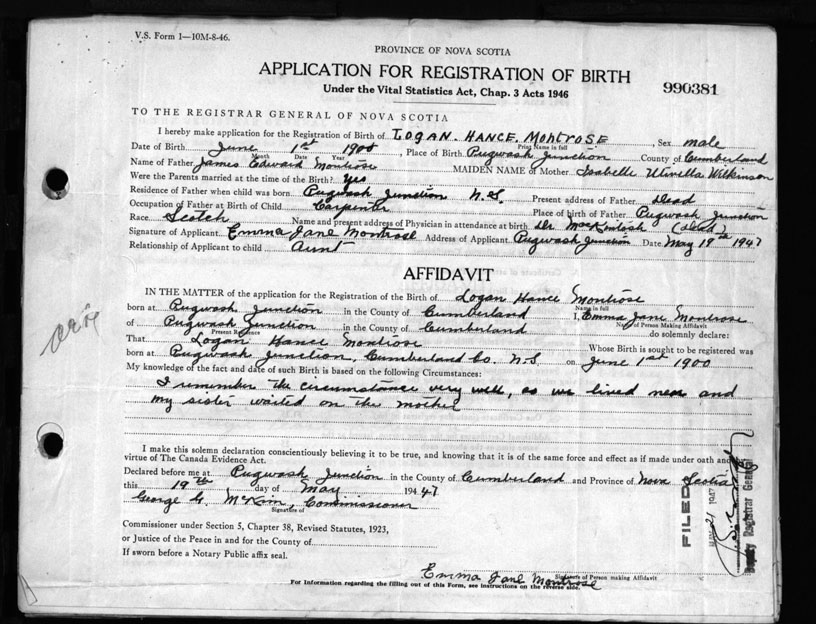 V.S. Form 1—10M-8-46.
PROVINCE OF NOVA SCOTIA
APPLICATION FOR REGISTRATION OF BIRTH
990381
Under the Vital Statistics Act, Chap. 3 Acts 1946
TO THE REGISTRAR GENERAL OF NOVA SCOTIA
I hereby make application for the Registration of Birth of LOGAN. HANCE. MONTROSE, Sex male
Print Name in full
Date of Birth June 1st 1900, Place of Birth Pugwash Junction County of Cumberland
Month Date Year
Name of Father James Edward Montrose MAIDEN NAME of Mother Isabelle Wilkinson
Were the Parents married at the time of the Birth? Yes
Residence of Father when child was born Pugwash Junction N.S. Present address of Father Dead
Occupation of Father at Birth of Child Carpenter Place of birth of Father Pugwash Junction
Race Scotch Name and present address of Physician in attendance at birth Dr. MacKintosh (dead)
Signature of Applicant Emma Jane Montrose Address of Applicant Pugwash Junction Date May 19th 1947
Relationship of Applicant to child Aunt
AFFIDAVIT
IN THE MATTER of the application for the Registration of Birth of Logan Hance Montrose
Name in full
born at Pugwash Junction in the County of Cumberland I, Emma Jane Montrose
Name of Person Making Affidavit
of Pugwash Junction in the County of Cumberland do solemnly declare:
Present Residence
That Logan Hance Montrose Whose Birth is sought to be registered was
born at Pugwash Junction, Cumberland Co. N.S. on June 1st 1900
My knowledge of the fact and date of such Birth is based on the following Circumstances:
I remember the circumstance very well, as we lived near and
my sister waited on the mother
I make this solemn declaration conscientiously believing it to be true, and knowing that it is of the same force and effect as if made under oath and by
virtue of The Canada Evidence Act.
Declared before me at Pugwash Junction in the County of Cumberland and Province of Nova Scotia
this 19th day of May 1947
George G. McKim, Commissioner
Signature of
Commissioner under Section 5, Chapter 38, Revised Statutes, 1923,
or Justice of the Peace in and for the County of
If sworn before a Notary Public affix seal.
Emma Jane Montrose
Signature of Person making Affidavit
For Information regarding the filling out of this Form, see instructions on the reverse side.
FILED
MAY 21 1947
Deputy Registrar General